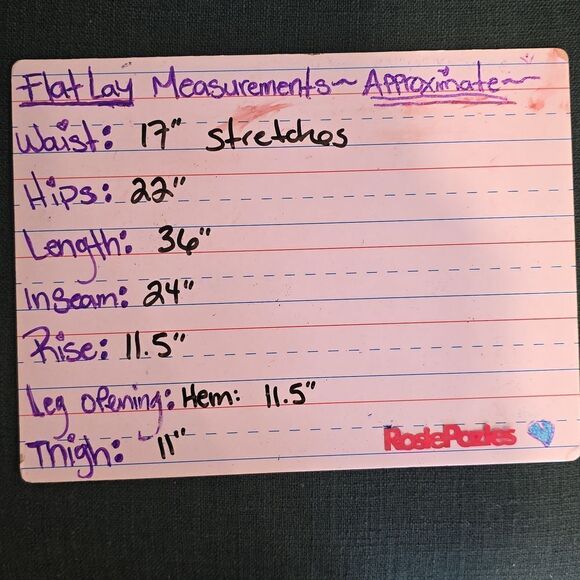 Flat Lay Measurements~ Approximate~
Waist: 17" stretches
Hips: 22"
Length: 36"
inseam: 24"
Rise: 11.5"
Leg opening: Hem: 11.5"
Thigh: 11"
RosiePozies